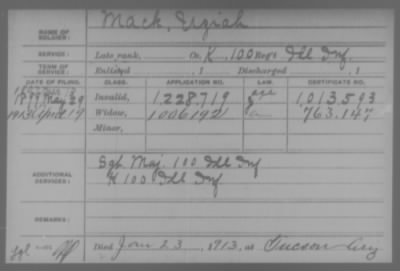 NAME OF SOLDIER: Mack, Uziah
SERVICE: Late rank, Co. K, 100 Reg't Ill Inf.
TERM OF SERVICE: Enlisted , 1 Discharged , 1
DATE OF FILING. CLASS. APPLICATION NO. LAW. CERTIFICATE NO.
May 29 Invalid, 1,228,719 1,013,593
1913 April 19 Widow, 1006192 763.147
Minor,
ADDITIONAL SERVICES: Sgt Maj. 100 Ill Inf
K 100 Ill Inf
REMARKS:
Died Jan 23, 1913, at Tucson Ariz